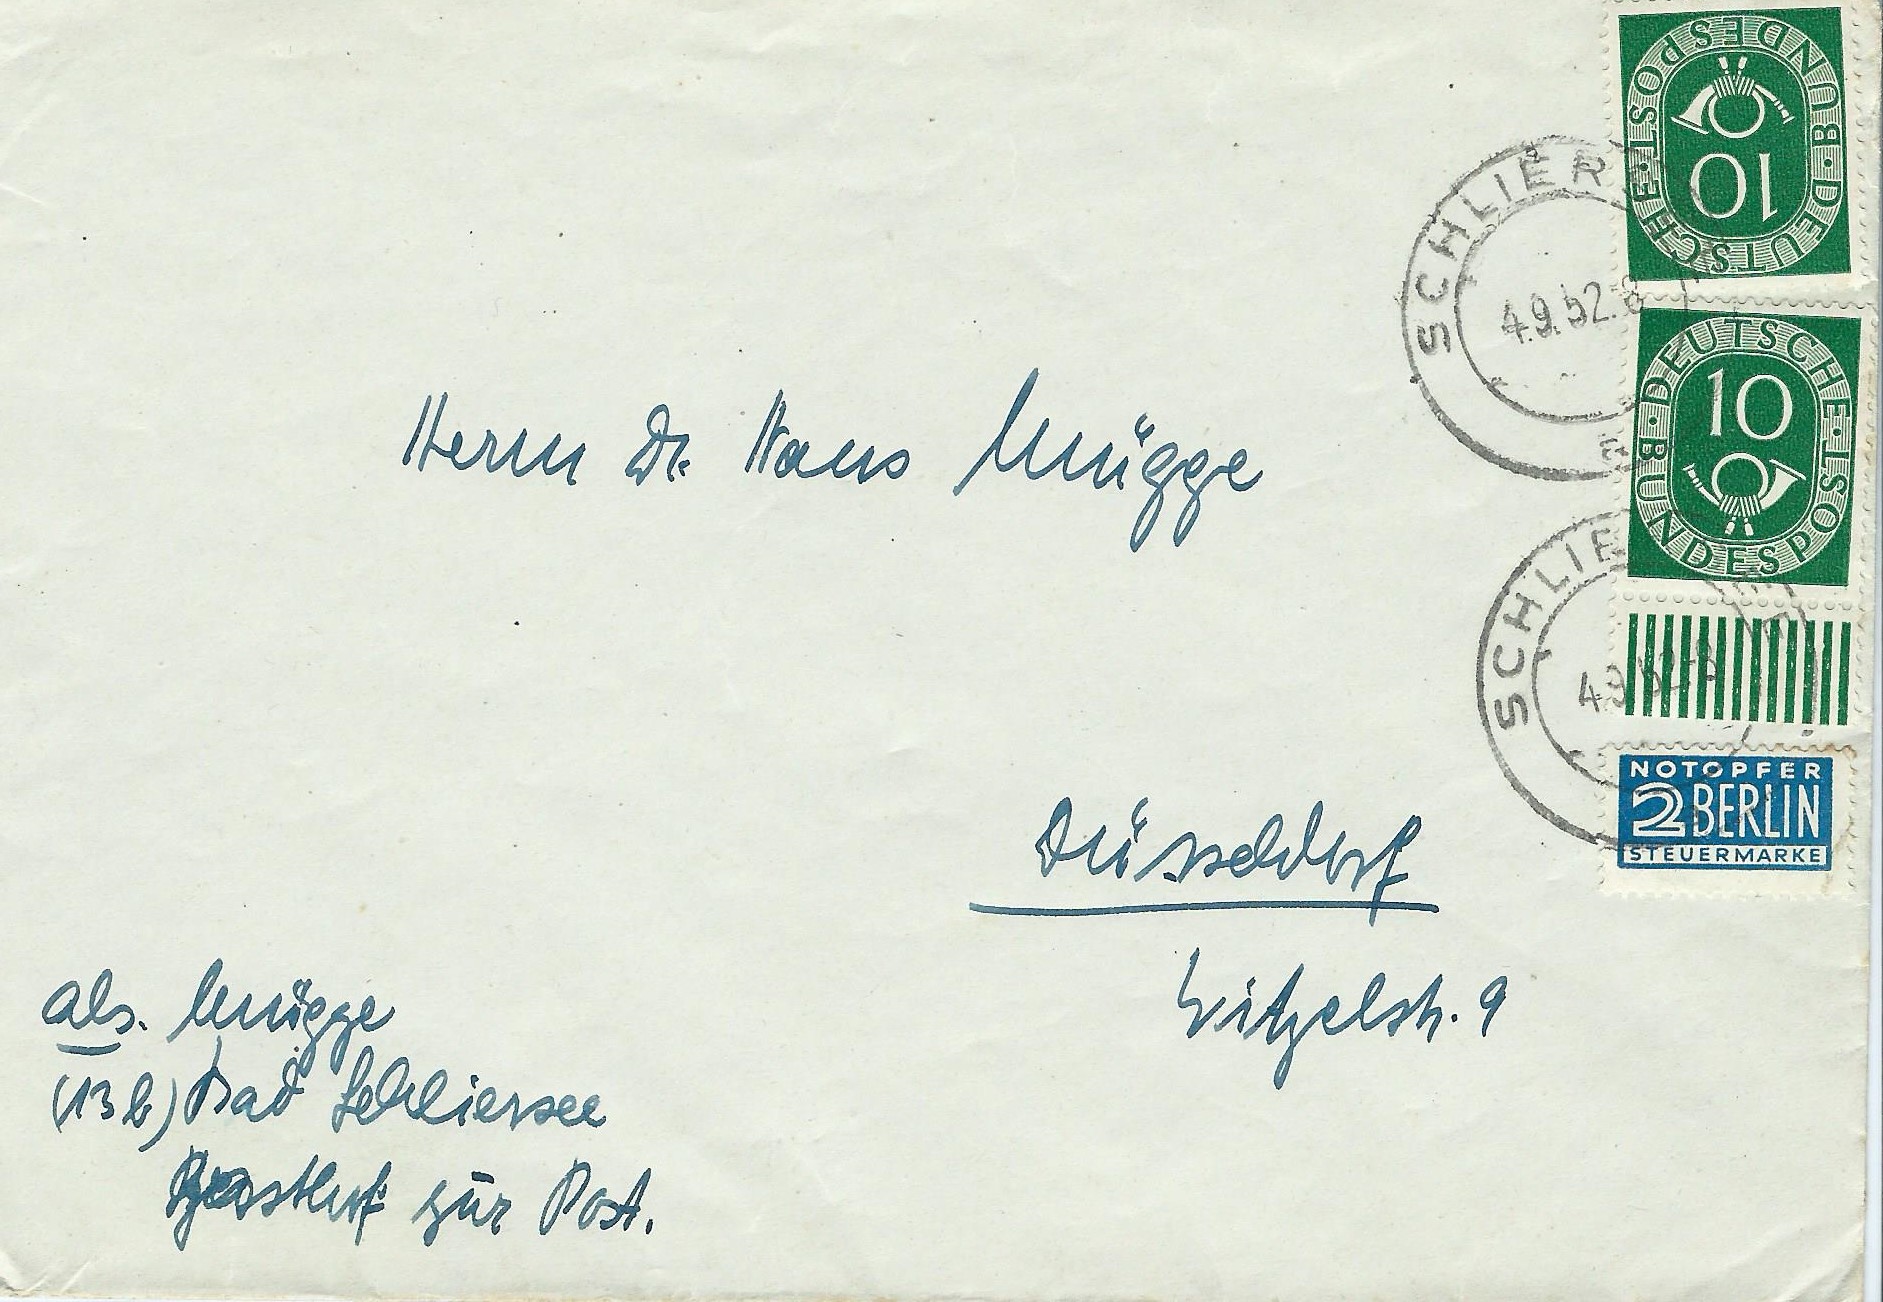 DEUTSCHE BUNDESPOST
10
SCHLIERSEE
4.9.52.-8
10
DEUTSCHE BUNDESPOST
SCHLIERSEE
4.9.52-8
NOTOPFER
2 BERLIN
STEUERMARKE
Herrn Dr. Hans Mügge
Düsseldorf
Witzelstr. 9
Abs. Mügge
(13b) Bad Schliersee
Gasthof zur Post.